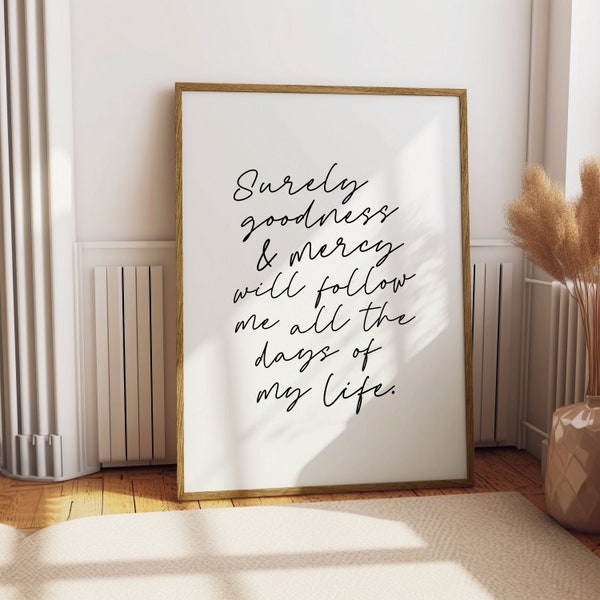 Surely
goodness
& mercy
will follow
me all the
days of
my life.